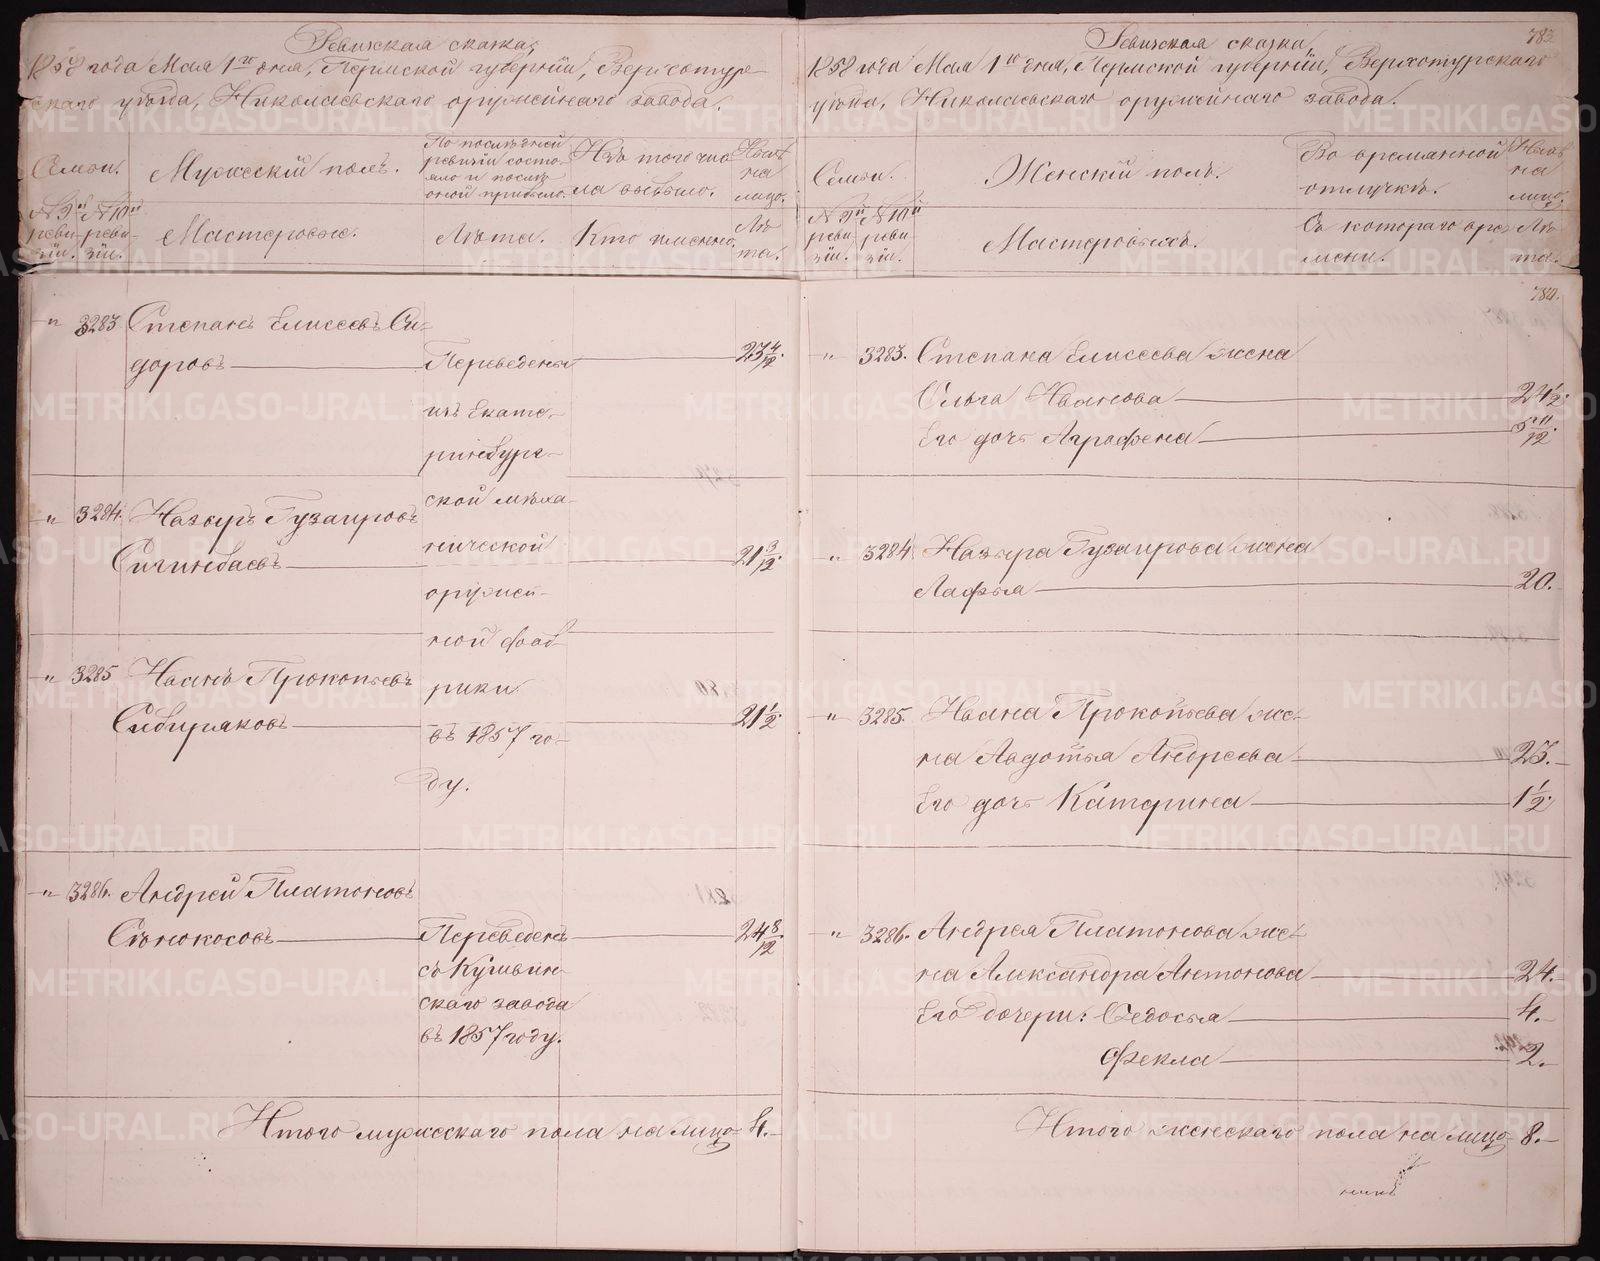 Ревизская сказка,
1858 года Мая 1го дня, Пермской губернии, Верхотур-
скаго уѣзда, Николаевскаго оружейнаго завода.
Семьи.
Мужескій полъ.
По послѣдней
ревизіи состо-
яло и послѣ
оной прибыло.
Изъ того чис
ла выбыло.
Нынѣ
на
лицо.
№ 9й № 10й
реви- реви-
зіи. зіи.
Мастеровые.
Лѣта.
Кто именно.
Лѣ
та.
„ 3283 Степанъ Елисеевъ Си-
доровъ Переведены 23 4/12.
изъ Екате-
ринбург-
ской меха-
нической
оружей-
ной фаб-
рики
въ 1857 го-
ду.
„ 3284. Назыръ Гузаировъ
Сигинбаевъ 21 3/12.
„ 3285 Иванъ Прокопьевъ
Сибиряковъ 21 1/2.
„ 3286. Андрей Платоновъ
Сѣнокосовъ Переведенъ 24 8/12
съ Кушвин-
скаго завода
въ 1857 году.
Итого мужескаго пола на лицо 4.
783
Ревизская сказка
1858 года Мая 1го дня, Пермской губерніи, Верхотурскаго
уѣзда, Николаевскаго оружейнаго завода.
Семьи.
Женскій полъ.
Во временной
отлучкѣ.
Нынѣ
на
лицо.
№ 9й № 10й
реви- реви-
зіи. зіи.
Мастеровыхъ.
Съ котораго вре
мени.
Лѣ-
та.
784.
„ 3283. Степана Елисеева жена
Ольга Иванова 24 1/2.
Его дочь Аграфена 5/12.
„ 3284 Назыра Гузаирова жена
Лафыя 20.
„ 3285. Ивана Прокопьева же-
на Авдотья Андреева 23.
Его дочь Катерина 1 1/2.
„ 3286. Андрея Платонова же-
на Александра Антонова 24.
Его дочери: Федосья 4.
Фекла 2.
Итого женскаго пола на лицо 8.
METRIKI.GASO-URAL.RU